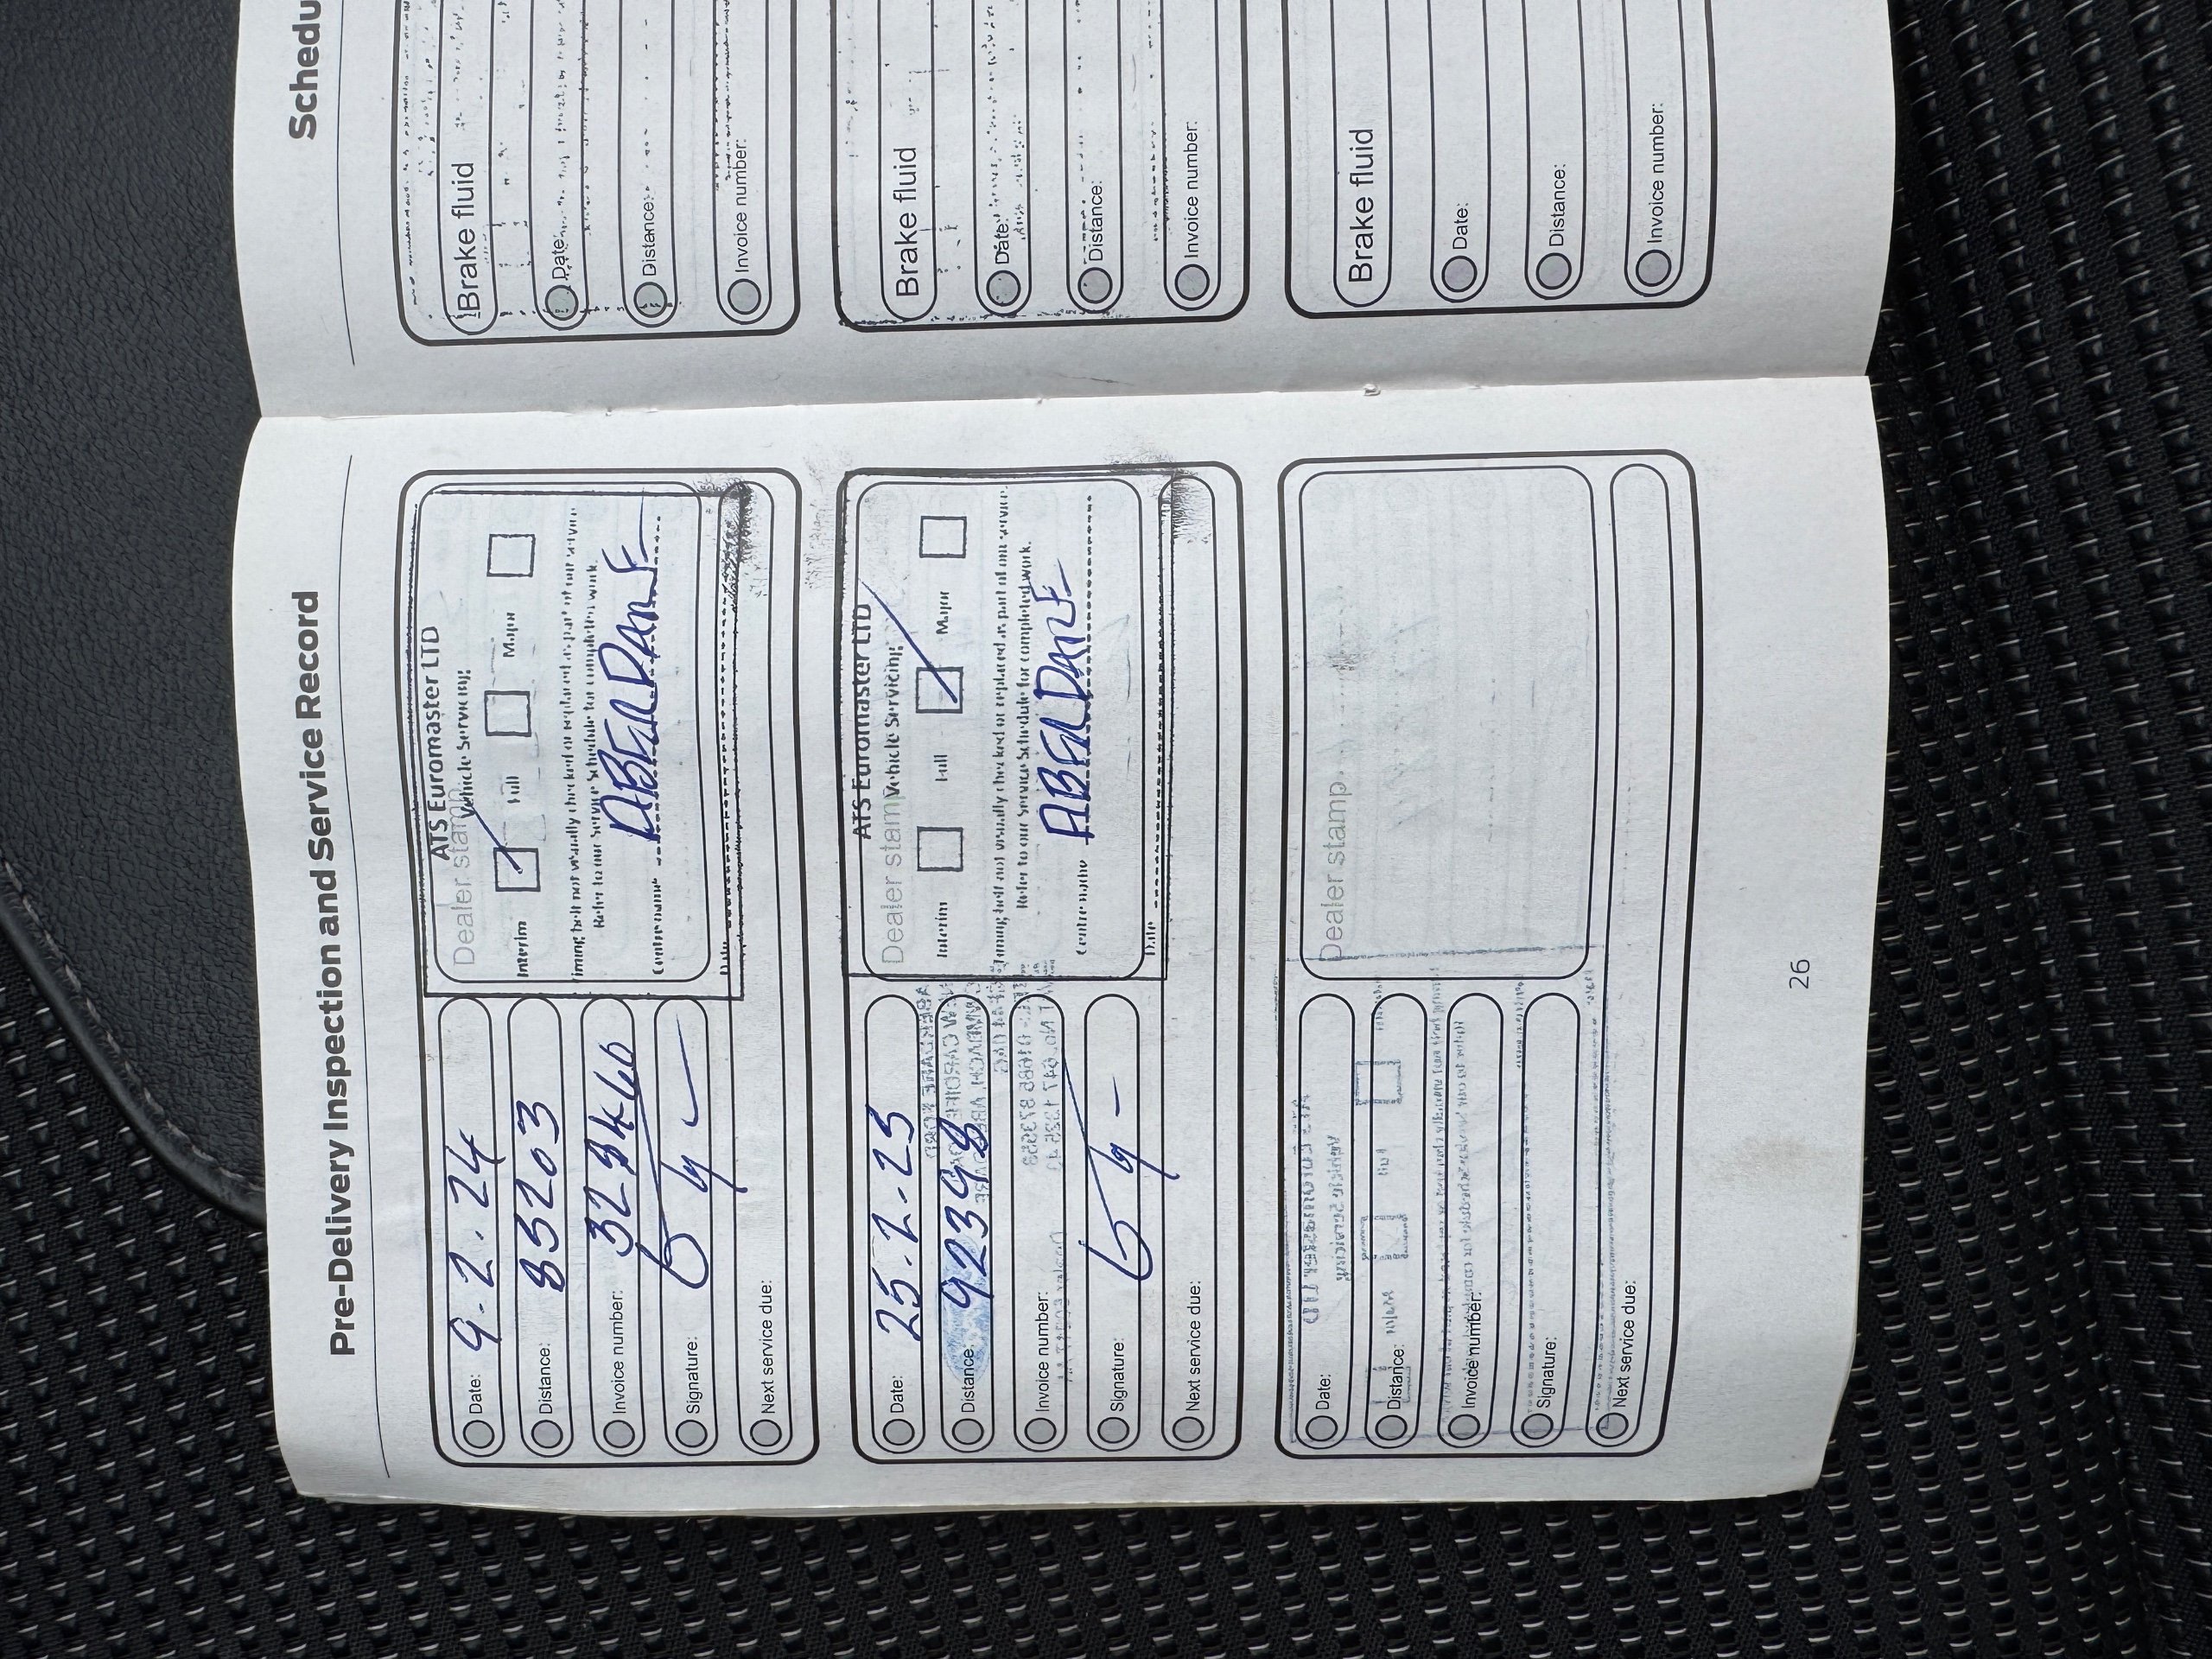 Pre-Delivery Inspection and Service Record
Date: 9.2.24
Distance: 85203
Invoice number:
Signature:
Next service due:
Dealer stamp
ATS Euromaster LTD
Vehicle Servicing
Interim Full Major
Timing belt not visually checked or replaced as part of our service.
Refer to our Service Schedule for completed work.
Centre name ABERDARE
Date
Date:
Distance: 92398
Invoice number:
Signature:
Next service due:
Dealer stamp
ATS Euromaster LTD
Vehicle Servicing
Interim Full Major
Timing belt not visually checked or replaced as part of our service.
Refer to our Service Schedule for completed work.
Centre name ABERDARE
Date
Date:
Distance:
Invoice number:
Signature:
Next service due:
Dealer stamp
26
Schedu
Brake fluid
Date:
Distance:
Invoice number:
Brake fluid
Date:
Distance:
Invoice number:
Brake fluid
Date:
Distance:
Invoice number: